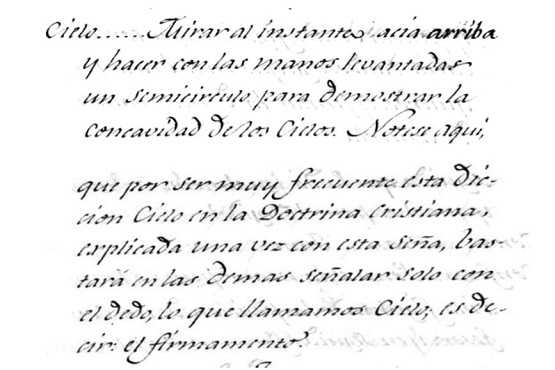 Cielo......Mirar al instante acia arriba
y hacer con las manos levantadas
un semicirculo para demostrar la
concavidad de los Cielos. Notese aqui,
que por ser muy frecuente esta dic-
cion Cielo en la Doctrina cristiana,
explicada una vez con esta seña, bas-
tará en las demas señalar solo con
el dedo, lo que llamamos Cielo; es de-
cir: el firmamento.